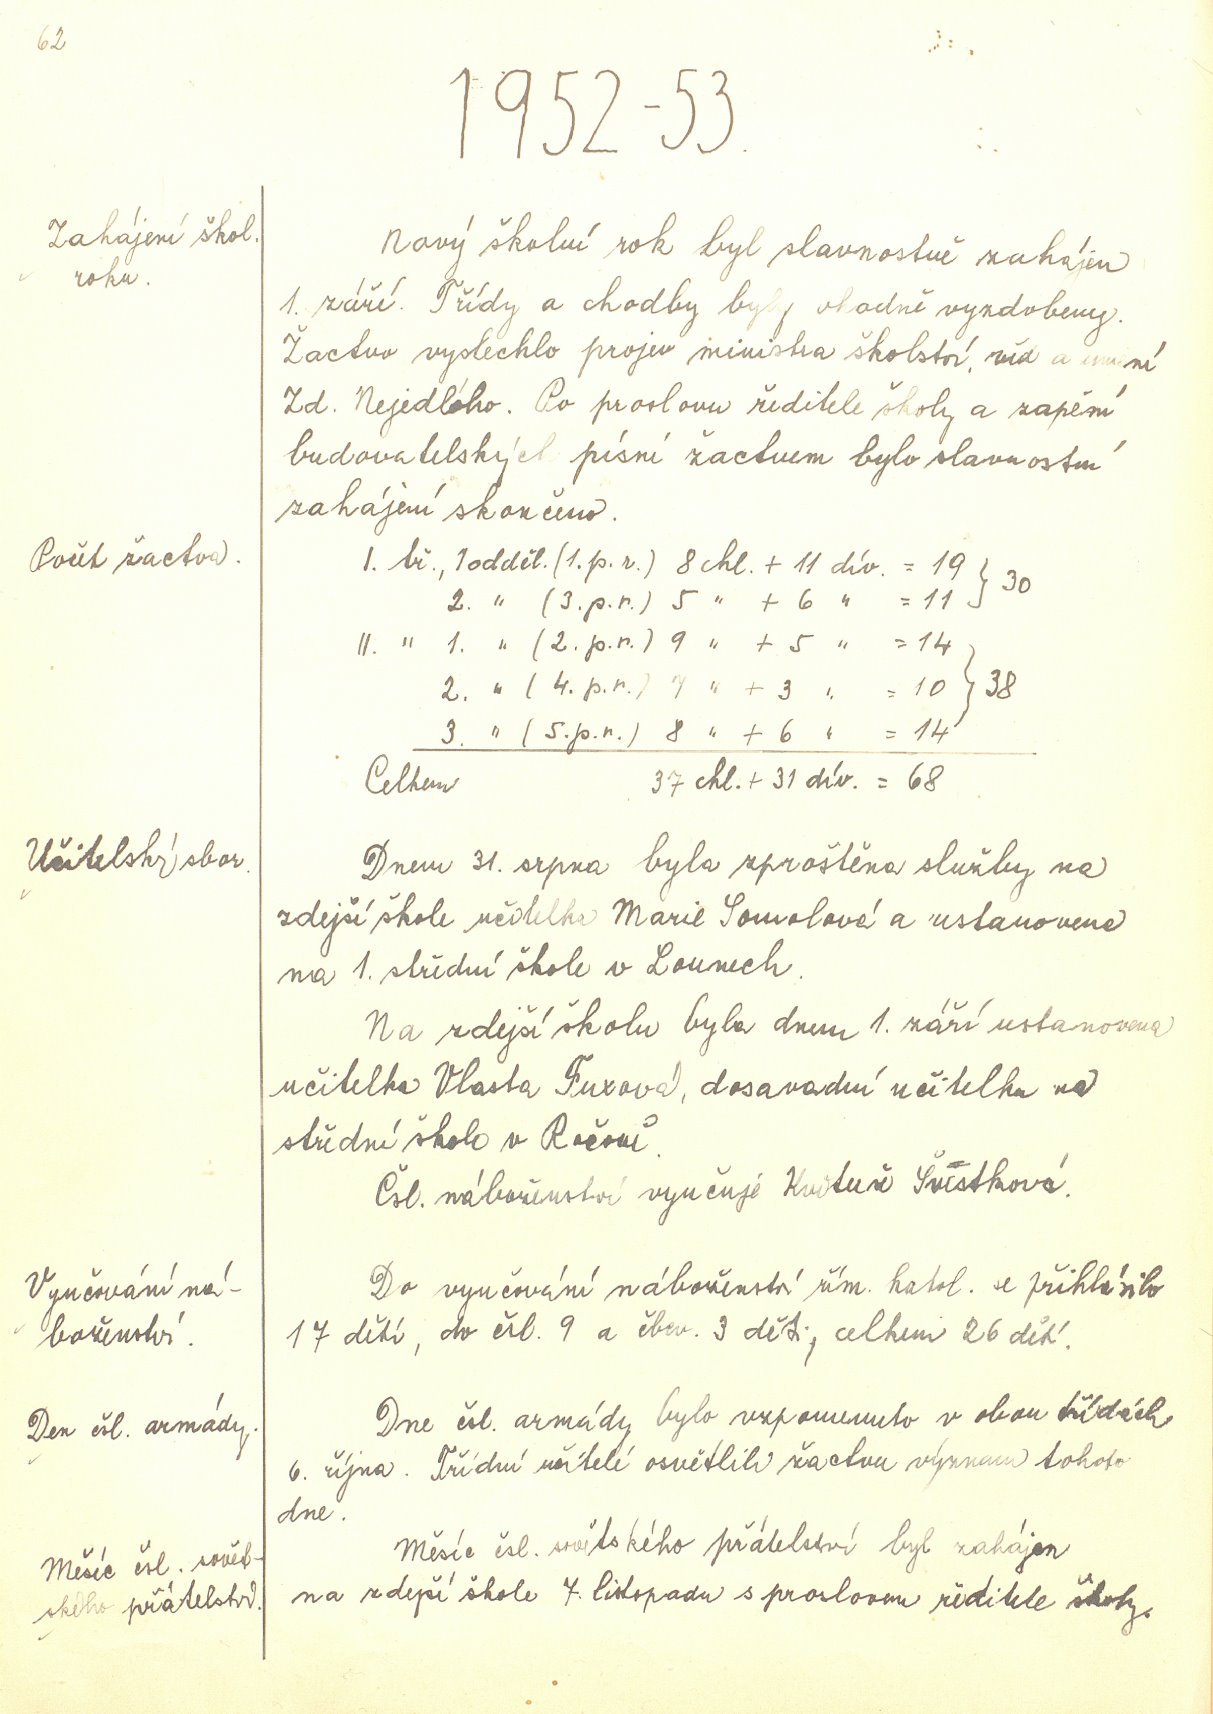 62
1952-53.
Zahájení škol.
roku.
Nový školní rok byl slavnostně zahájen
1. září. Třídy a chodby byly vhodně vyzdobeny.
Žactvo vyslechlo projev ministra školství, věd a umění
Zd. Nejedlého. Po proslovu ředitele školy a zapění
budovatelských písní žactvem bylo slavnostní
zahájení skončeno.
Počet žactva.
I. tř., 1 odděl. (1. p. r.) 8 chl. + 11 dív. = 19
2. " (3. p. r.) 5 " + 6 " = 11 } 30
II. " 1. " (2. p. r.) 9 " + 5 " = 14
2. " (4. p. r.) 7 " + 3 " = 10 } 38
3. " (5. p. r.) 8 " + 6 " = 14
Celkem 37 chl. + 31 dív. = 68
Učitelský sbor.
Dnem 31. srpna byla zproštěna služby na
zdejší škole učitelka Marie Somolová a ustanovena
na 1. střední škole v Lounech.
Na zdejší školu byla dnem 1. září ustanovena
učitelka Vlasta Fuxová, dosavadní učitelka na
střední škole v Ročově.
Čsl. náboženství vyučuje Květuše Švestková.
Vyučování ná-
boženství.
Do vyučování náboženství řím. katol. se přihlásilo
17 dětí, do čsl. 9 a čbev. 3 děti, celkem 26 dětí.
Den čsl. armády.
Dne čsl. armády bylo vzpomenuto v obou třídách
6. října. Třídní učitelé osvětlili žactvu význam tohoto
dne.
Měsíc čsl. sovět-
ského přátelství.
Měsíc čsl. sovětského přátelství byl zahájen
na zdejší škole 7. listopadu s proslovem ředitele školy.